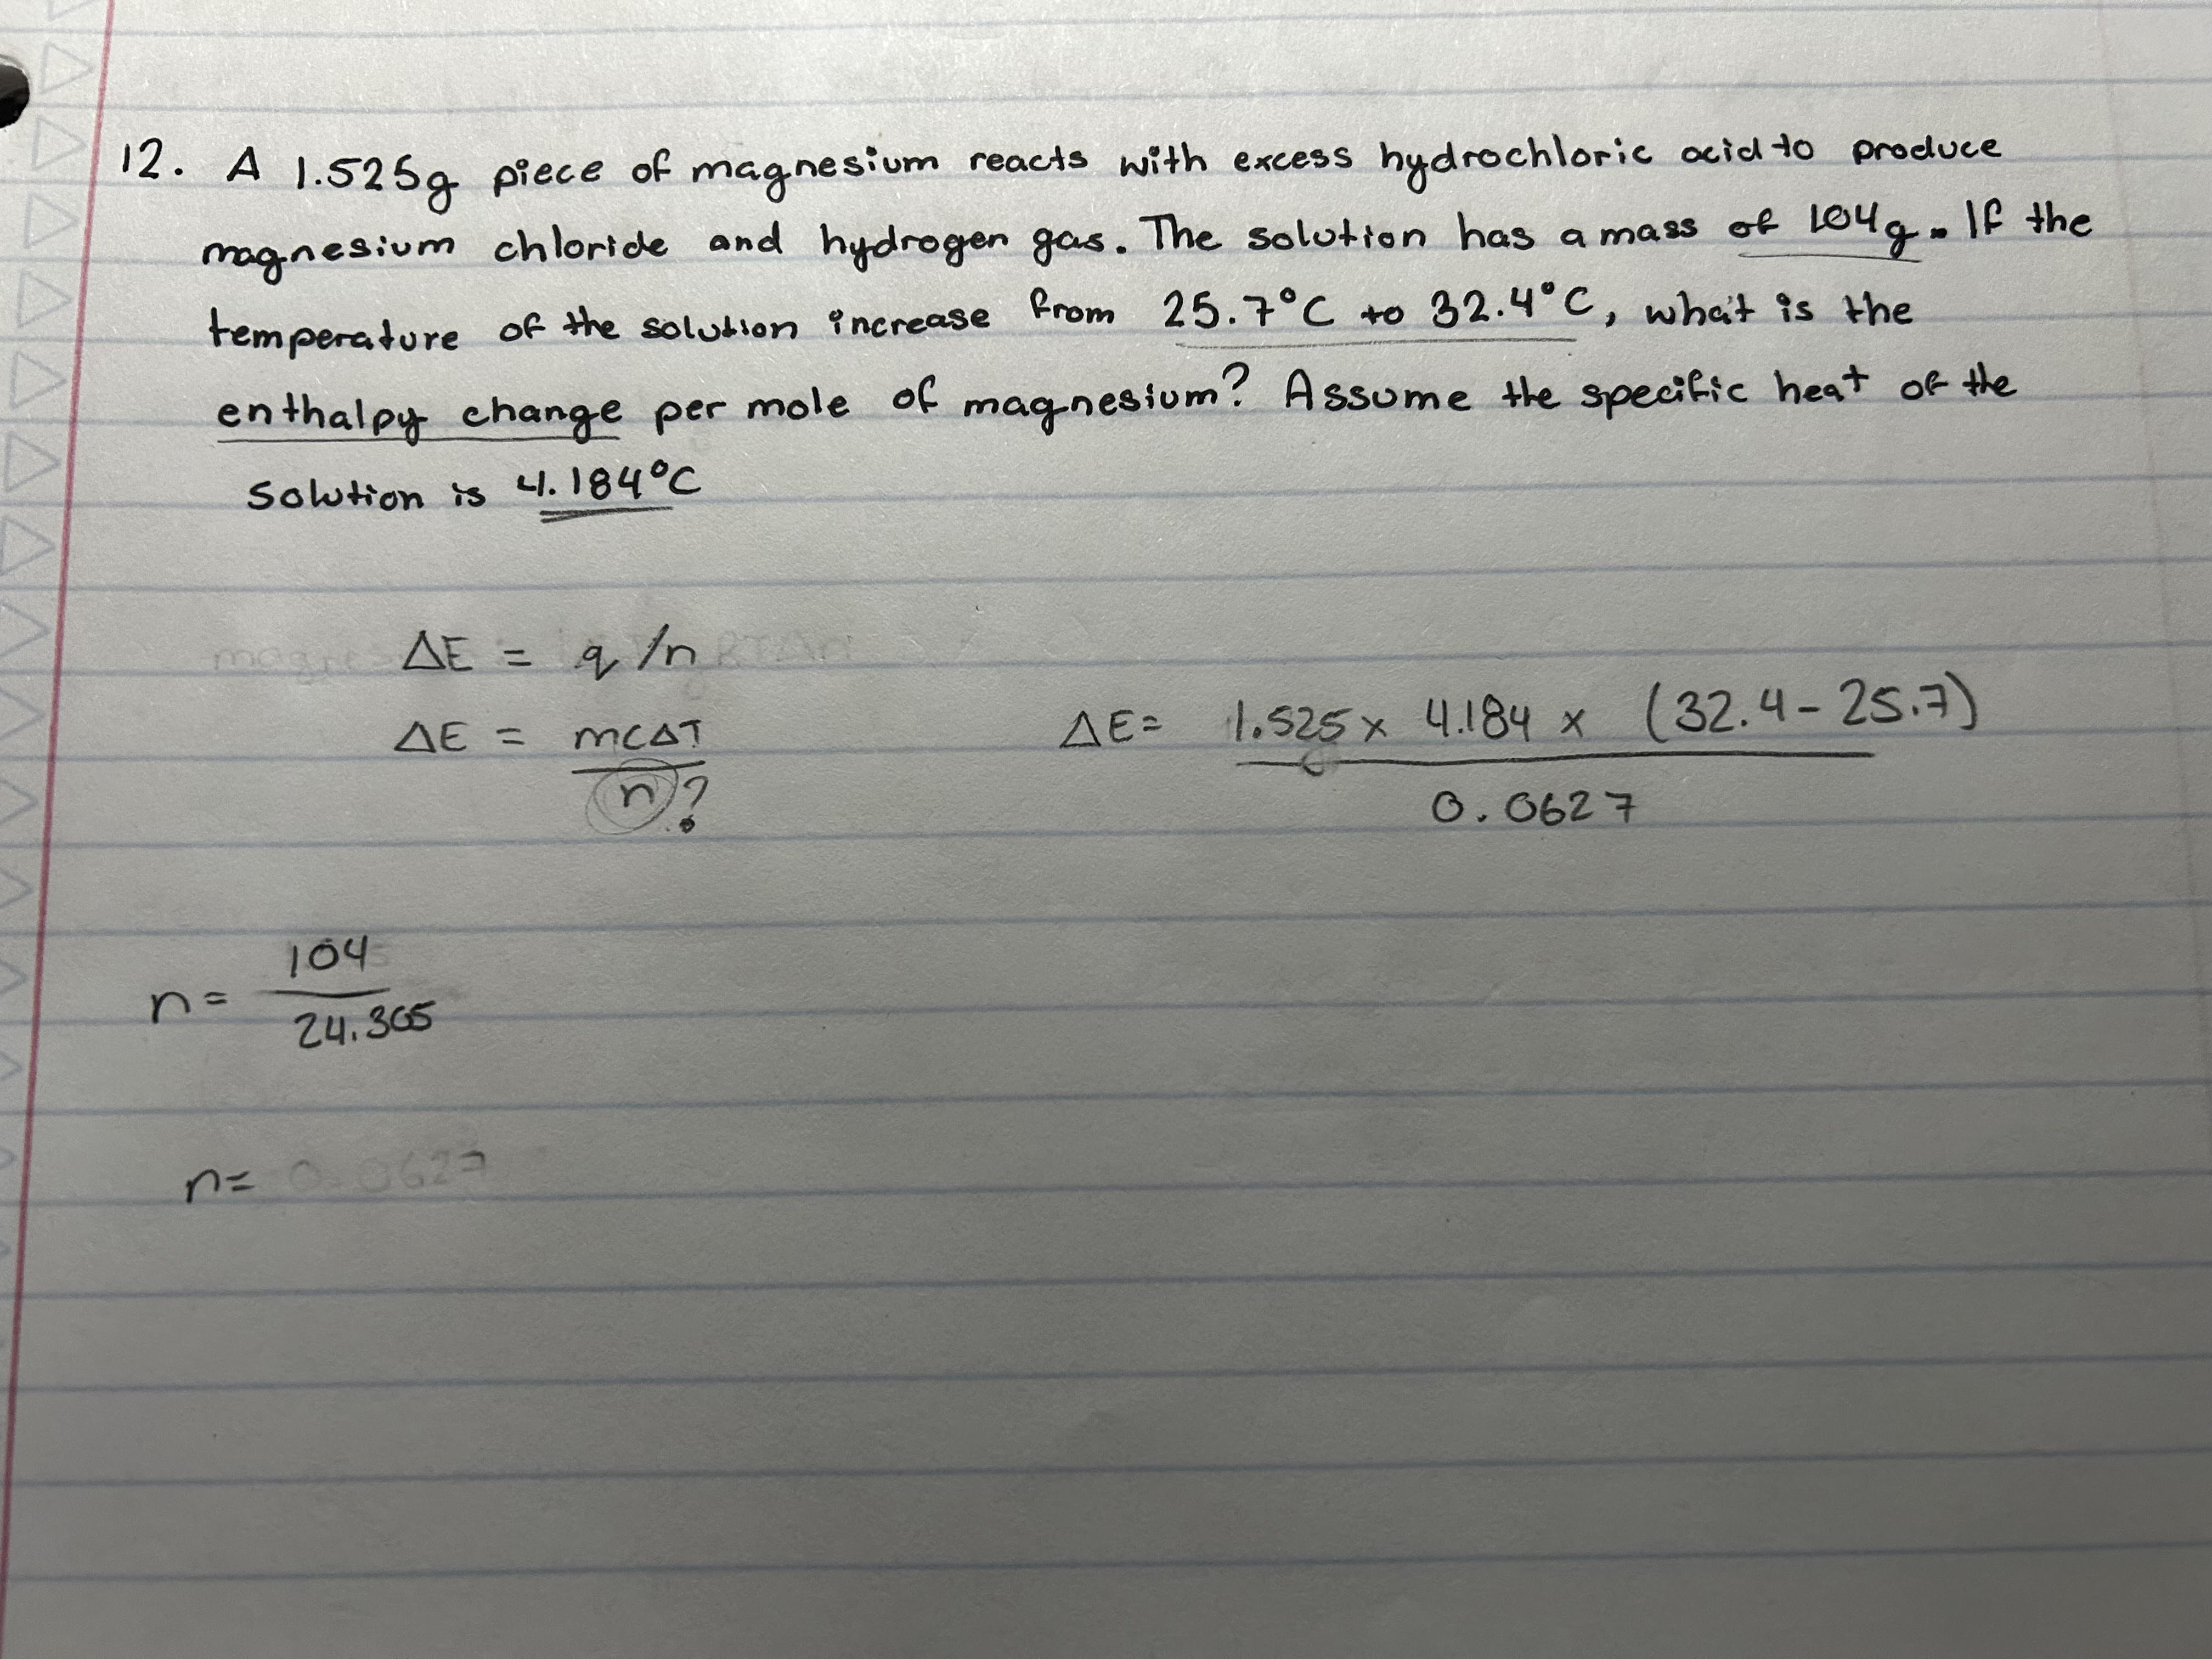 12. A 1.525g piece of magnesium reacts with excess hydrochloric acid to produce
magnesium chloride and hydrogen gas. The solution has a mass of 104g. If the
temperature of the solution increase from 25.7°C to 32.4°C, what is the
enthalpy change per mole of magnesium? Assume the specific heat of the
solution is 4.184°C
ΔE = q/n
ΔE = mcΔT
n?
ΔE= 1.525 x 4.184 x (32.4-25.7)
0.0627
n= 104
24.305
n= 0.0627